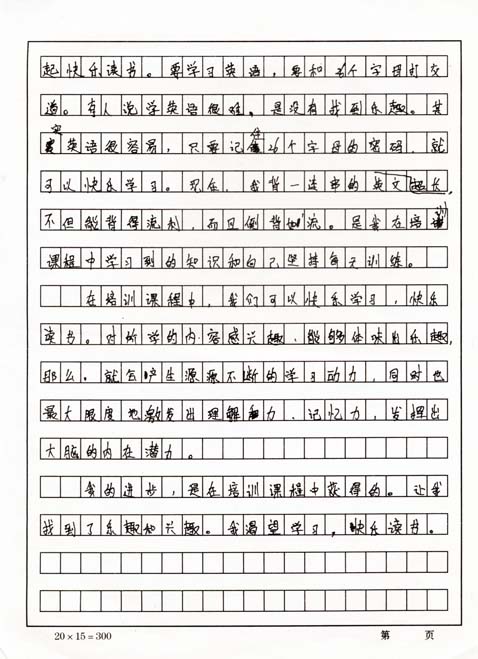 起快乐读书。要学习英语,要和26个字母打交
道。有人说学英语很难,是没有找到乐趣。其
实英语很容易,只要记住26个字母的密码,就
可以快乐学习。现在,我背一连串的英文超长,
不但能背得流利,而且倒背如流。是我在培训
课程中学习到的知识和自己坚持每天训练。
在培训课程中,我们可以快乐学习,快乐
读书。对所学的内容感兴趣,能够体味出乐趣,
那么,就会产生源源不断的学习动力,同时也
最大限度地激发出理解力、记忆力,发挥出
大脑的内在潜力。
我的进步,是在培训课程中获得的。让我
找到了乐趣和兴趣。我渴望学习,快乐读书。
20×15=300 第 页